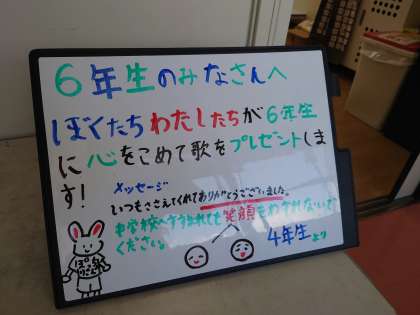 6年生のみなさんへ
ぼくたちわたしたちが6年生
に心をこめて歌をプレゼントしま
す!
メッセージ
いつもささえてくれてありがとうございました。
中学校へすすまれても笑顔をわすれないで
ください。
4年生より